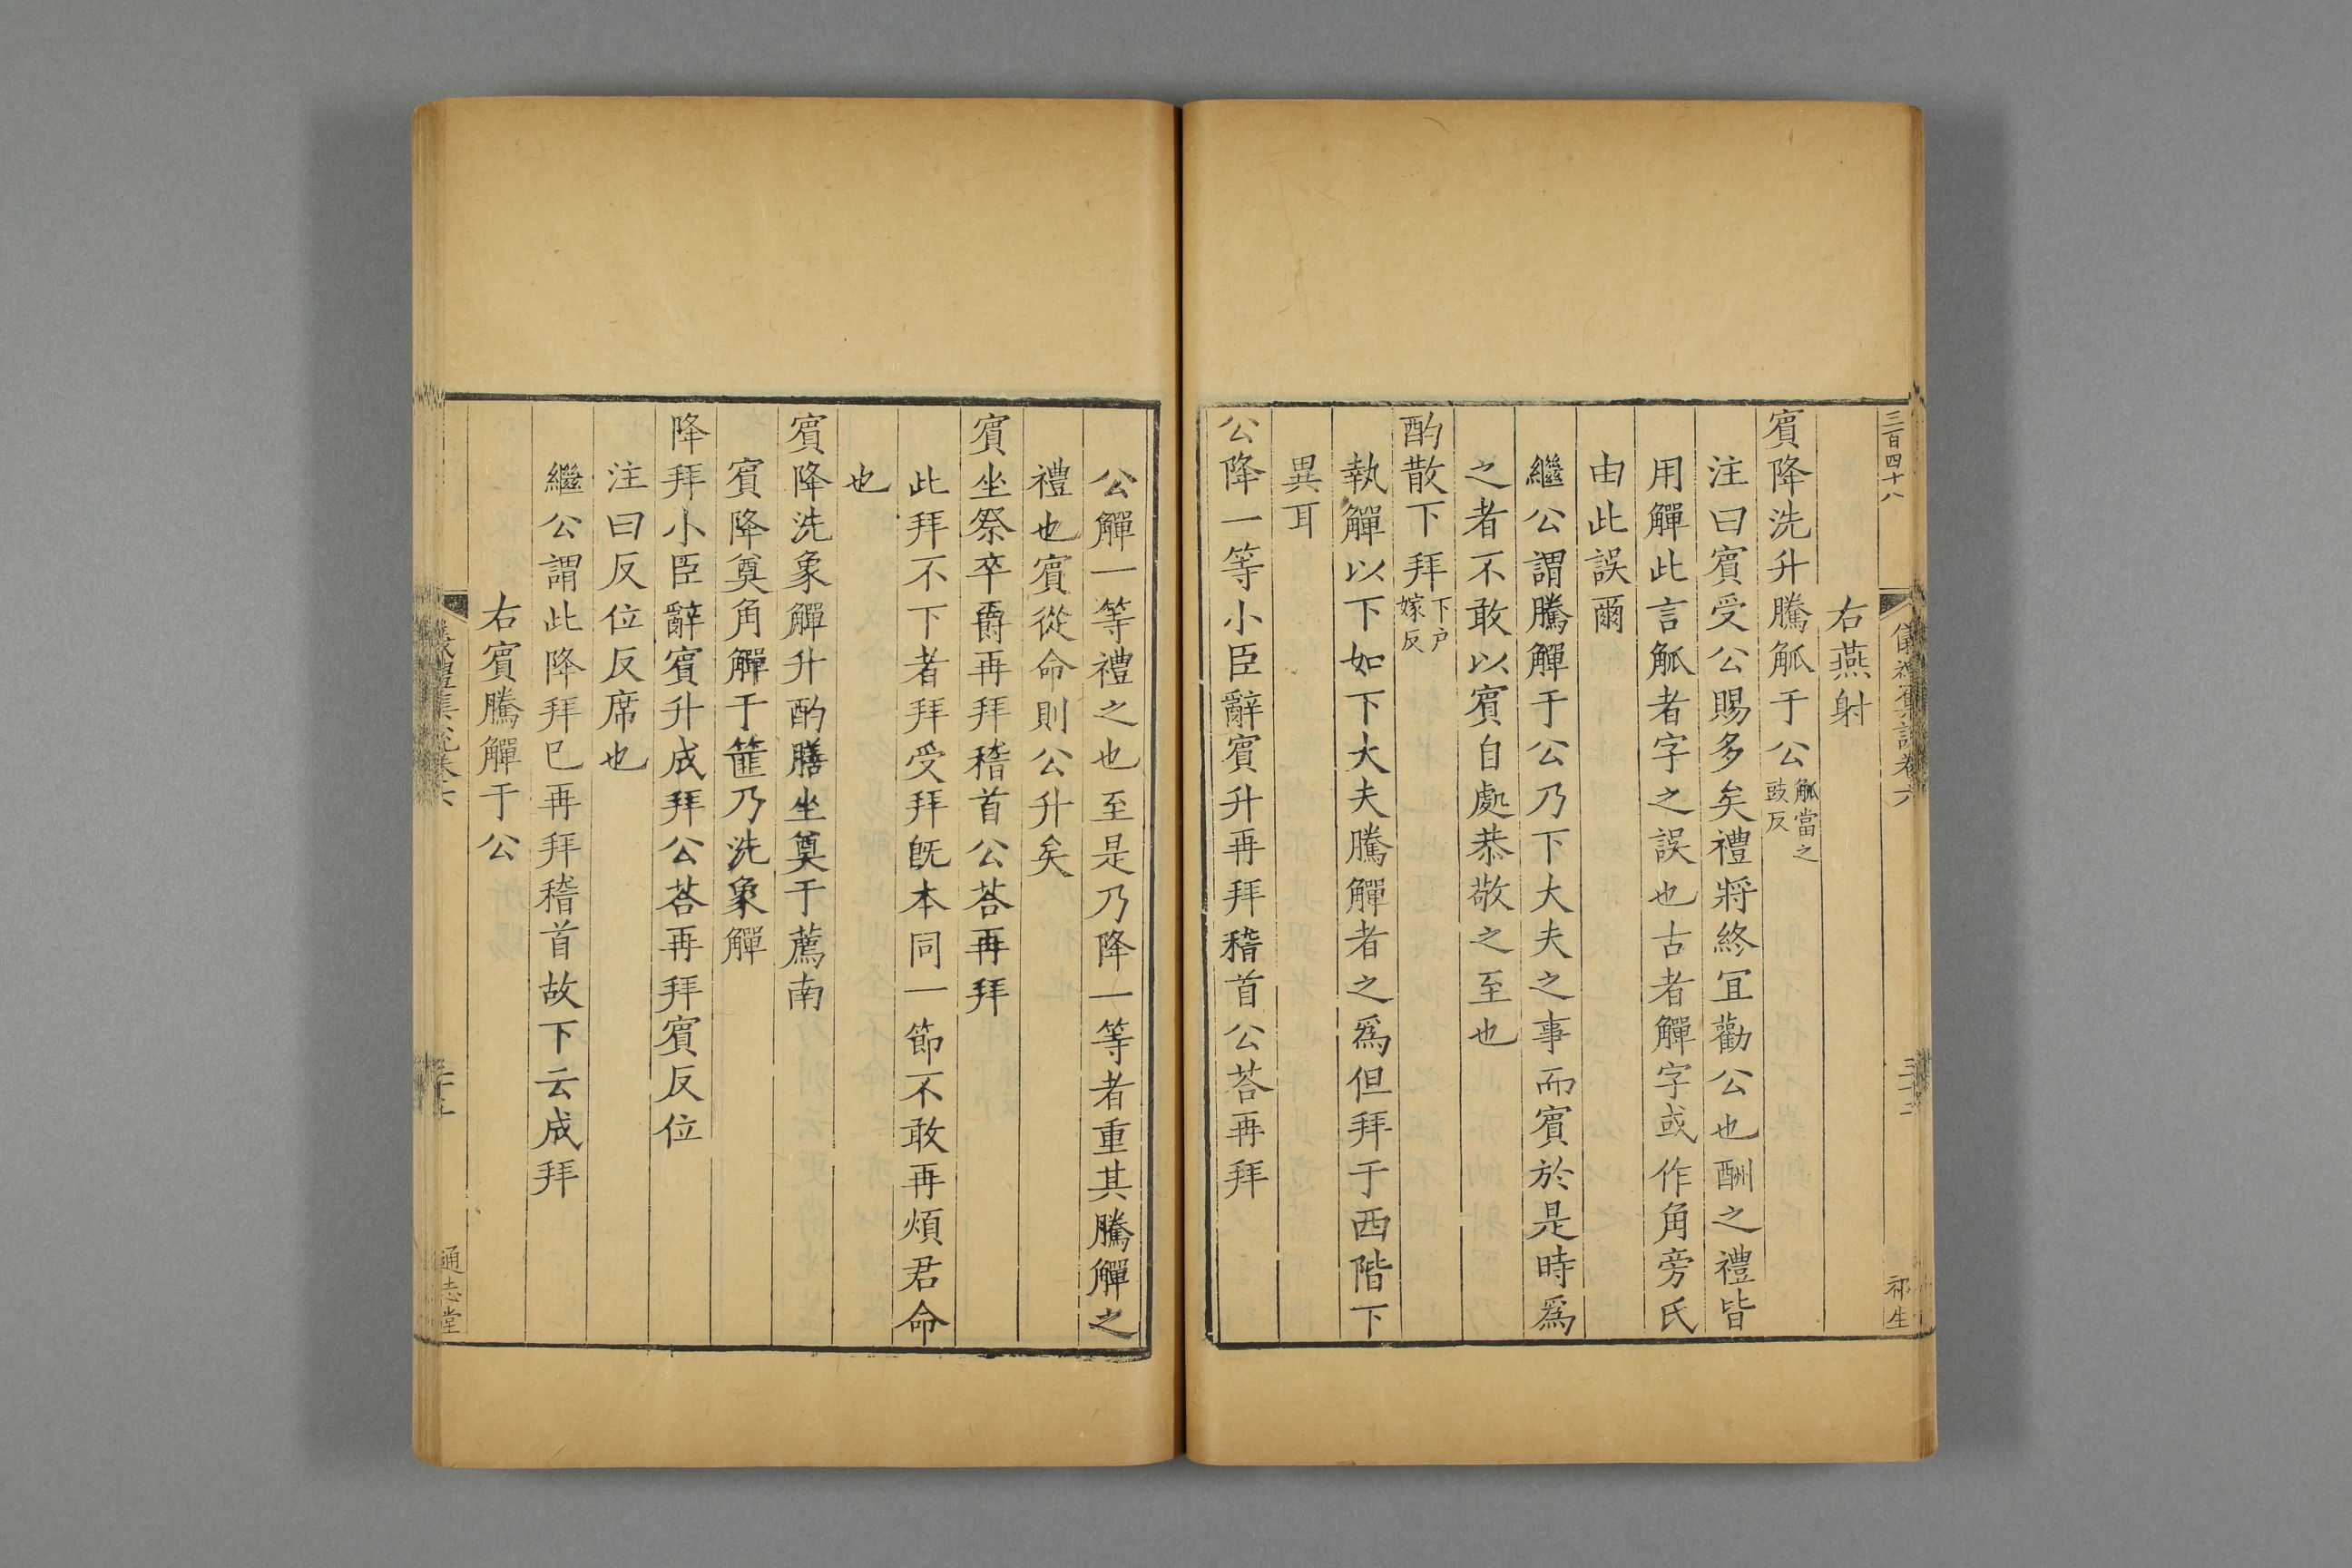 三百四十八
右燕射
賔降洗升騰觚于公觚當之豉反
注曰賔受公賜多矣禮將終宜勸公也酬之禮皆
用觶此言觚者字之誤也古者觶字或作角旁氏
由此誤爾
繼公謂騰觶于公乃下大夫之事而賔於是時爲
之者不敢以賔自處恭敬之至也
酌散下拜下户嫁反
執觶以下如下大夫騰觶者之爲但拜于西階下
異耳
公降一等小臣辭賔升再拜稽首公荅再拜
祁生
公觶一等禮之也至是乃降一等者重其騰觶之
禮也賔從命則公升矣
賔坐祭卒爵再拜稽首公荅再拜
此拜不下者拜受拜旣本同一節不敢再煩君命
也
賔降洗象觶升酌膳坐奠于薦南
賔降奠角觶于篚乃洗象觶
降拜小臣辭賔升成拜公荅再拜賔反位
注曰反位反席也
繼公謂此降拜巳再拜稽首故下云成拜
右賔騰觶于公
通志堂